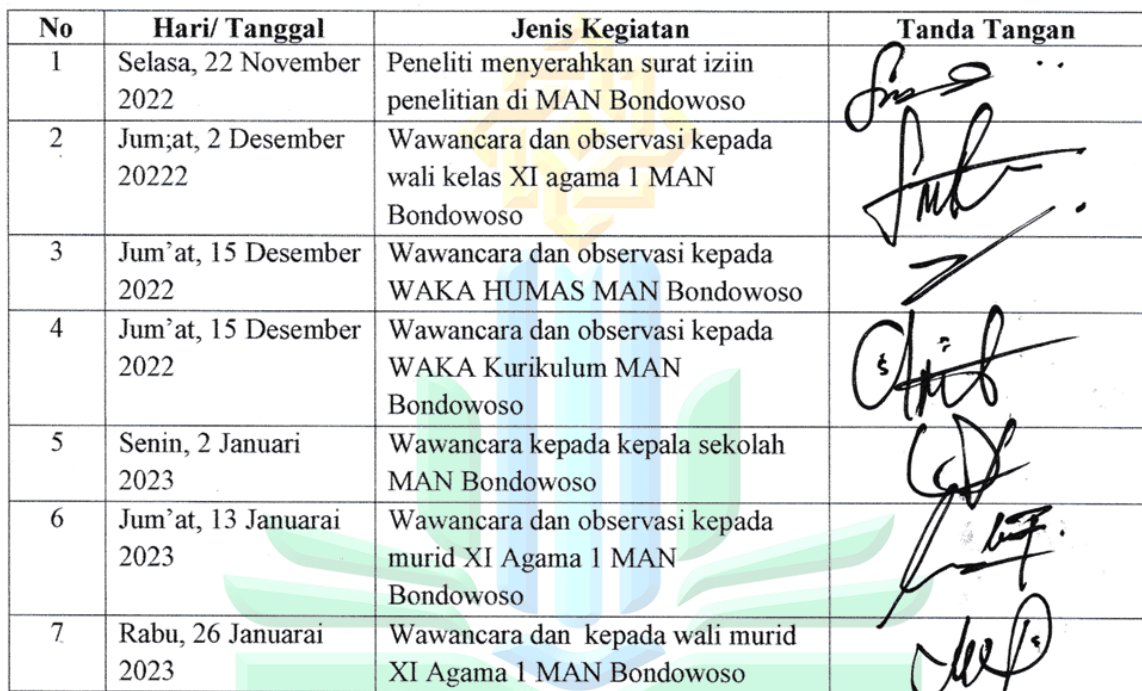 No Hari/ Tanggal Jenis Kegiatan Tanda Tangan
1 Selasa, 22 November Peneliti menyerahkan surat iziin
2022 penelitian di MAN Bondowoso
2 Jum;at, 2 Desember Wawancara dan observasi kepada
20222 wali kelas XI agama 1 MAN
Bondowoso
3 Jum'at, 15 Desember Wawancara dan observasi kepada
2022 WAKA HUMAS MAN Bondowoso
4 Jum'at, 15 Desember Wawancara dan observasi kepada
2022 WAKA Kurikulum MAN
Bondowoso
5 Senin, 2 Januari Wawancara kepada kepala sekolah
2023 MAN Bondowoso
6 Jum'at, 13 Januarai Wawancara dan observasi kepada
2023 murid XI Agama 1 MAN
Bondowoso
7 Rabu, 26 Januarai Wawancara dan kepada wali murid
2023 XI Agama 1 MAN Bondowoso